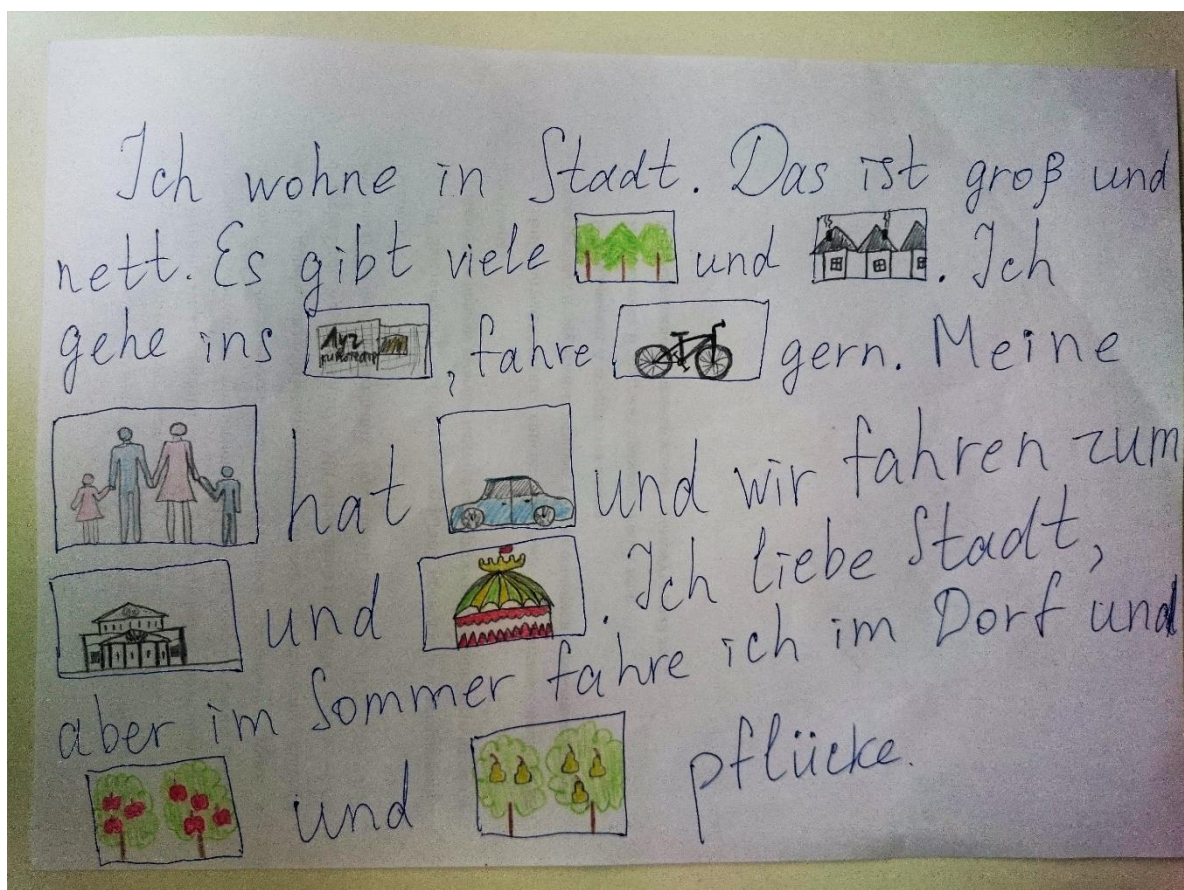 Ich wohne in Stadt. Das ist groß und
nett. Es gibt viele und . Ich
gehe ins , fahre gern. Meine
hat und wir fahren zum
und . Ich liebe Stadt,
aber im Sommer fahre ich im Dorf und
und pflücke.